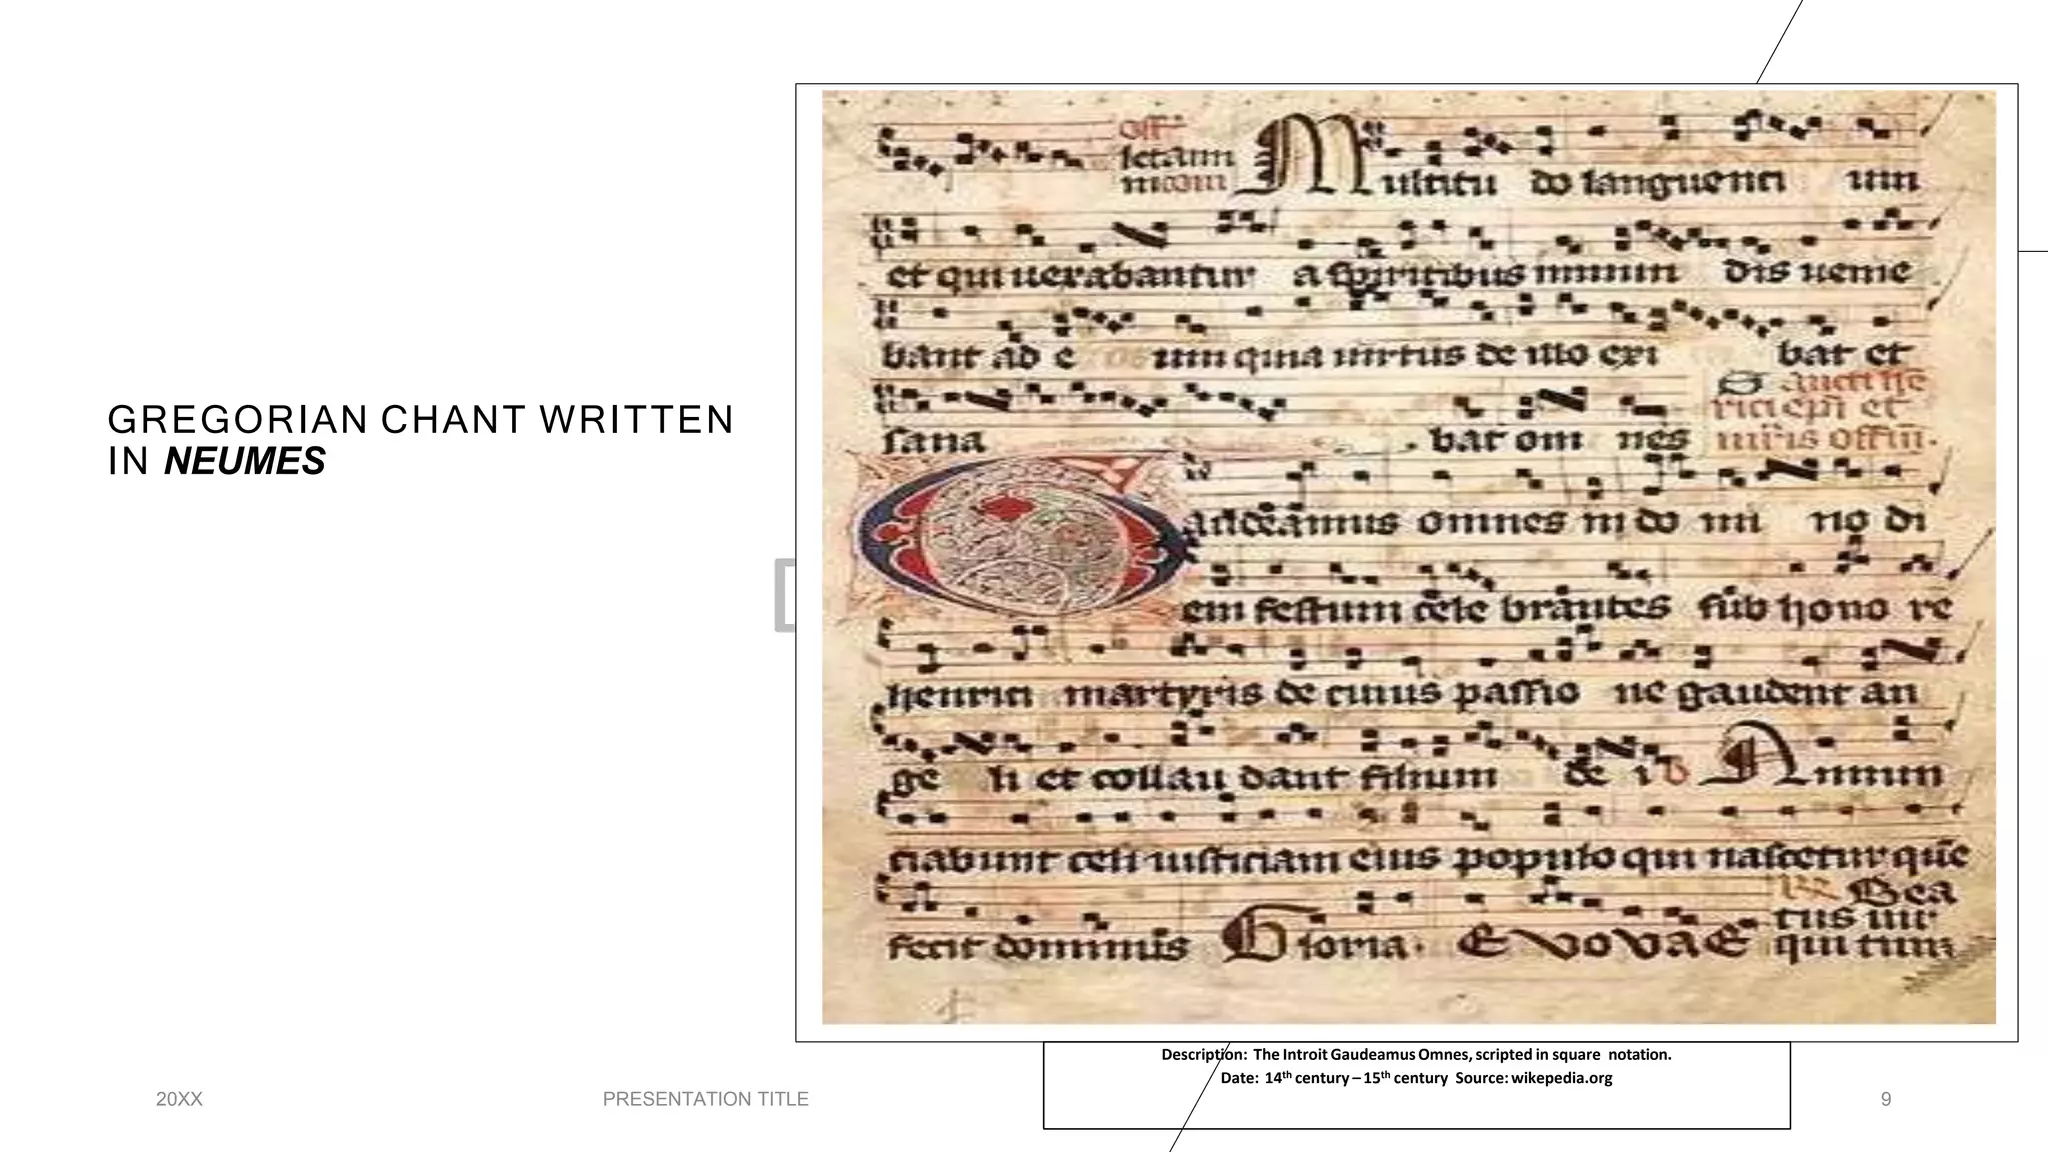 GREGORIAN CHANT WRITTEN
IN NEUMES
Off
ultitu do languenti um
et qui uexabantur a spiritibus inmun dis uenie
bant ad e um quia uirtus de illo exi bat et
sana bat om nes
audeamus omnes in do mi no di
em festum cele brantes sub hono re
henrici martyris de cuius passio ne gaudent an
ge li et collau dant filium de i
A nnun
ciabunt celi iusticiam eius populo qui nascetur que
fecit dominus Gloria. EVOVAE
Bea
tus uir
qui
Description: The Introit Gaudeamus Omnes, scripted in square notation.
Date: 14th century – 15th century Source: wikepedia.org
20XX
PRESENTATION TITLE
9